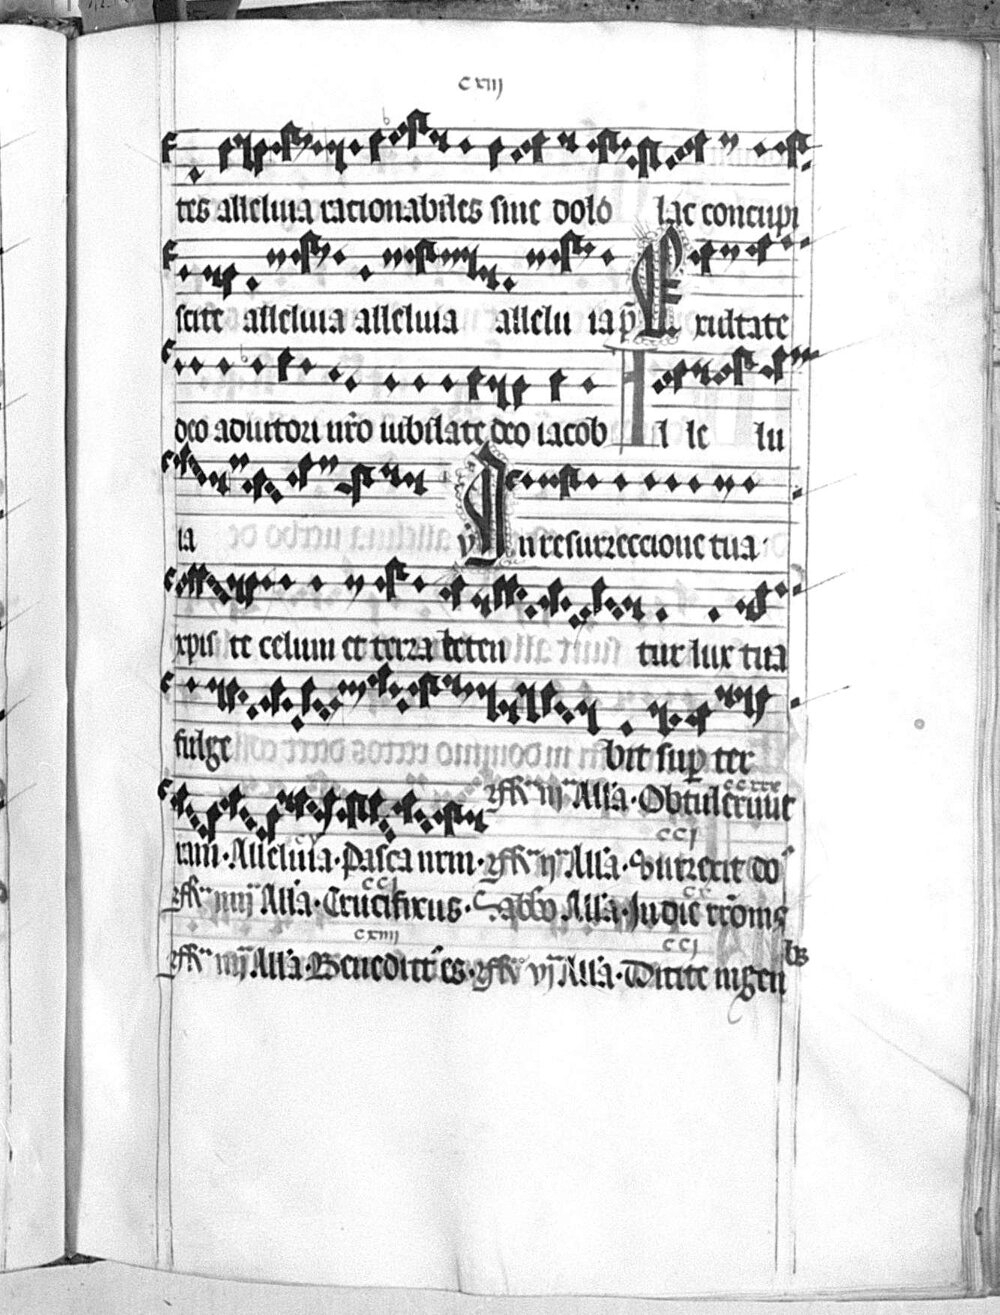 cxiij
tes alleluia racionabiles sine dolo lac concupi
scite alleluia alleluia allelu ia p̄s Exultate
deo adiutori nr̄o iubilate deo iacob Al le lu
ia v̄ In resurreccione tua
xpis te celum et terra leten tur lux tua
fulge bit sup ter
Alla · Obtulerunt
ccj
ram · Alleluia · Pasca nr̄m · Alla · Surrexit do
ccj cx
Alla · Crucifixus · Sabbo Alla · Iudic
cxiiij ccj
Alla · Benedict es · vj Alla · Dicite in gen